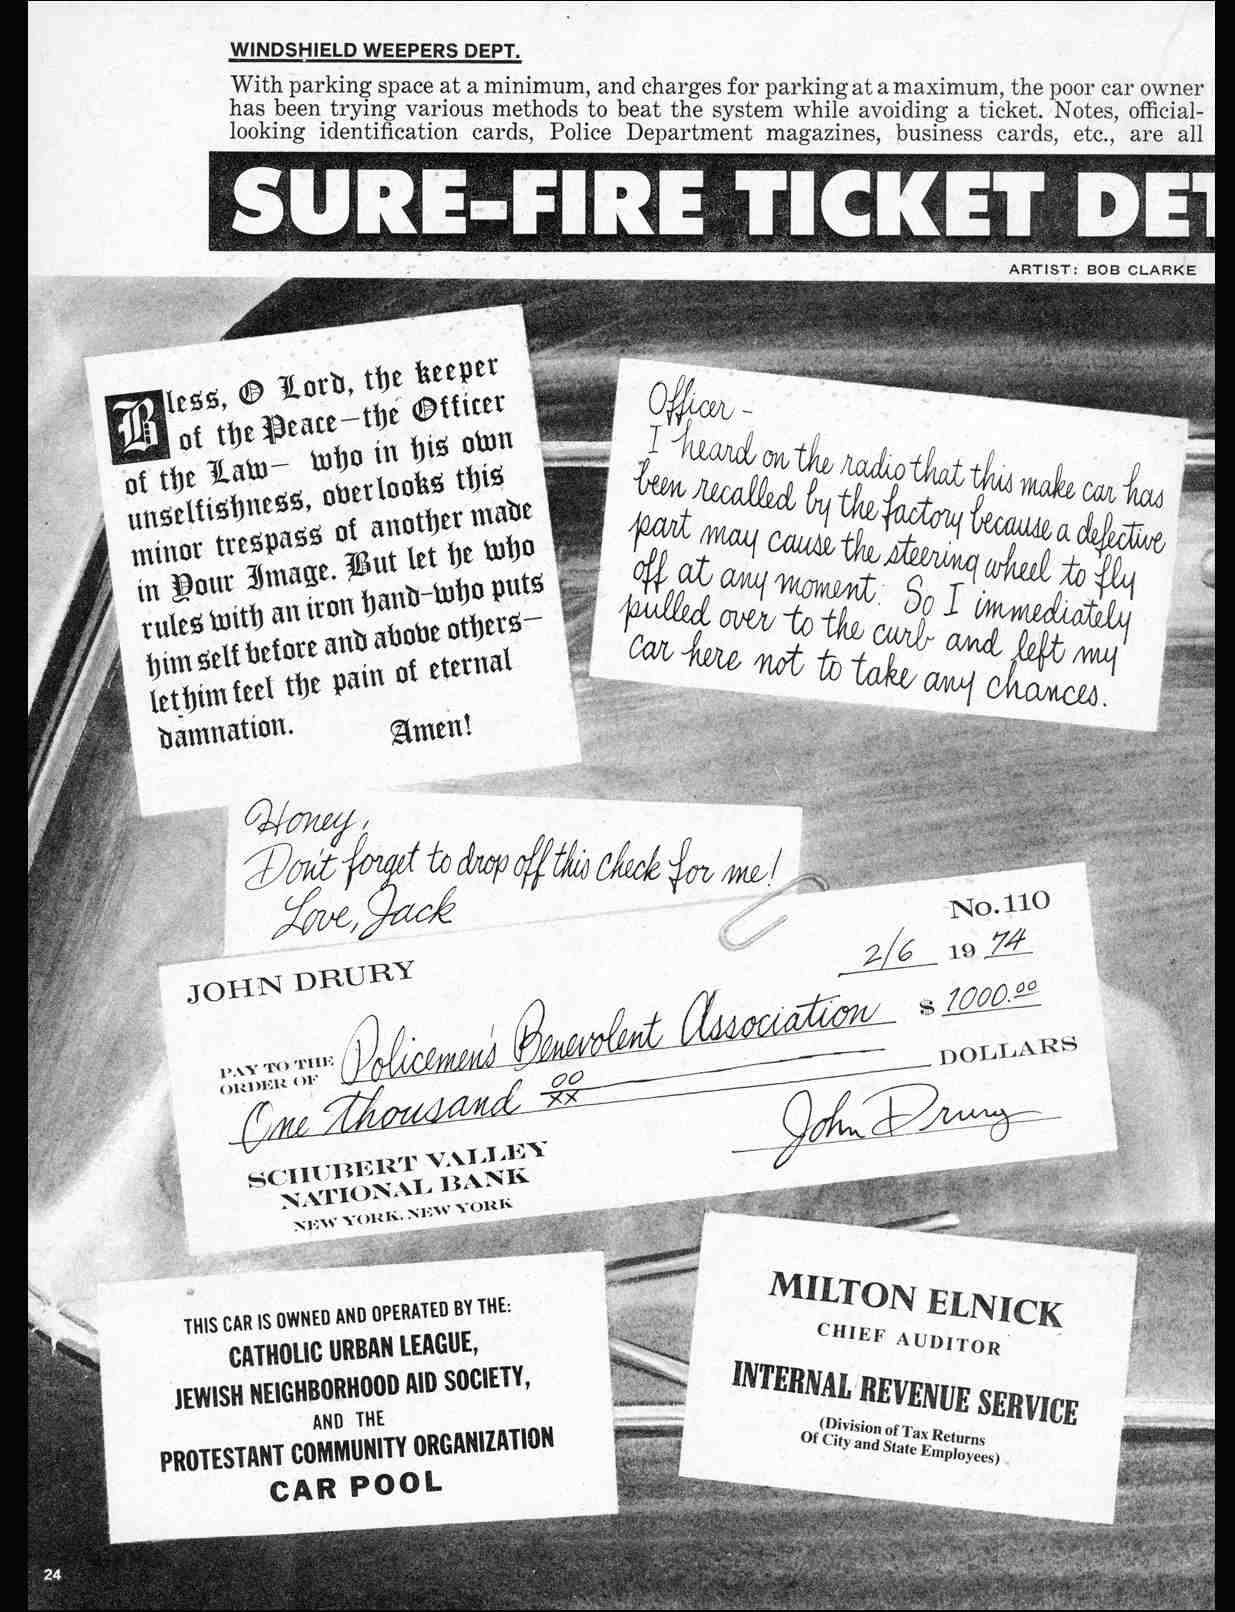 WINDSHIELD WEEPERS DEPT.
With parking space at a minimum, and charges for parking at a maximum, the poor car owner
has been trying various methods to beat the system while avoiding a ticket. Notes, official-
looking identification cards, Police Department magazines, business cards, etc., are all
SURE-FIRE TICKET DET
ARTIST: BOB CLARKE
Bless, O Lord, the keeper
of the Peace—the Officer
of the Law— who in his own
unselfishness, overlooks this
minor trespass of another made
in Your Image. But let he who
rules with an iron hand—who puts
him self before and above others—
let him feel the pain of eternal
damnation. Amen!
Officer -
I heard on the radio that this make car has
been recalled by the factory because a defective
part may cause the steering wheel to fly
off at any moment. So I immediately
pulled over to the curb and left my
car here not to take any chances.
Honey,
Don't forget to drop off this check for me!
Love, Jack
No. 110
JOHN DRURY
2/6 19 74
PAY TO THE
ORDER OF Policemen's Benevolent Association $ 1000.00
One thousand 00/XX DOLLARS
John Drury
SCHUBERT VALLEY
NATIONAL BANK
NEW YORK, NEW YORK
THIS CAR IS OWNED AND OPERATED BY THE:
CATHOLIC URBAN LEAGUE,
JEWISH NEIGHBORHOOD AID SOCIETY,
AND THE
PROTESTANT COMMUNITY ORGANIZATION
CAR POOL
MILTON ELNICK
CHIEF AUDITOR
INTERNAL REVENUE SERVICE
(Division of Tax Returns
Of City and State Employees)
24